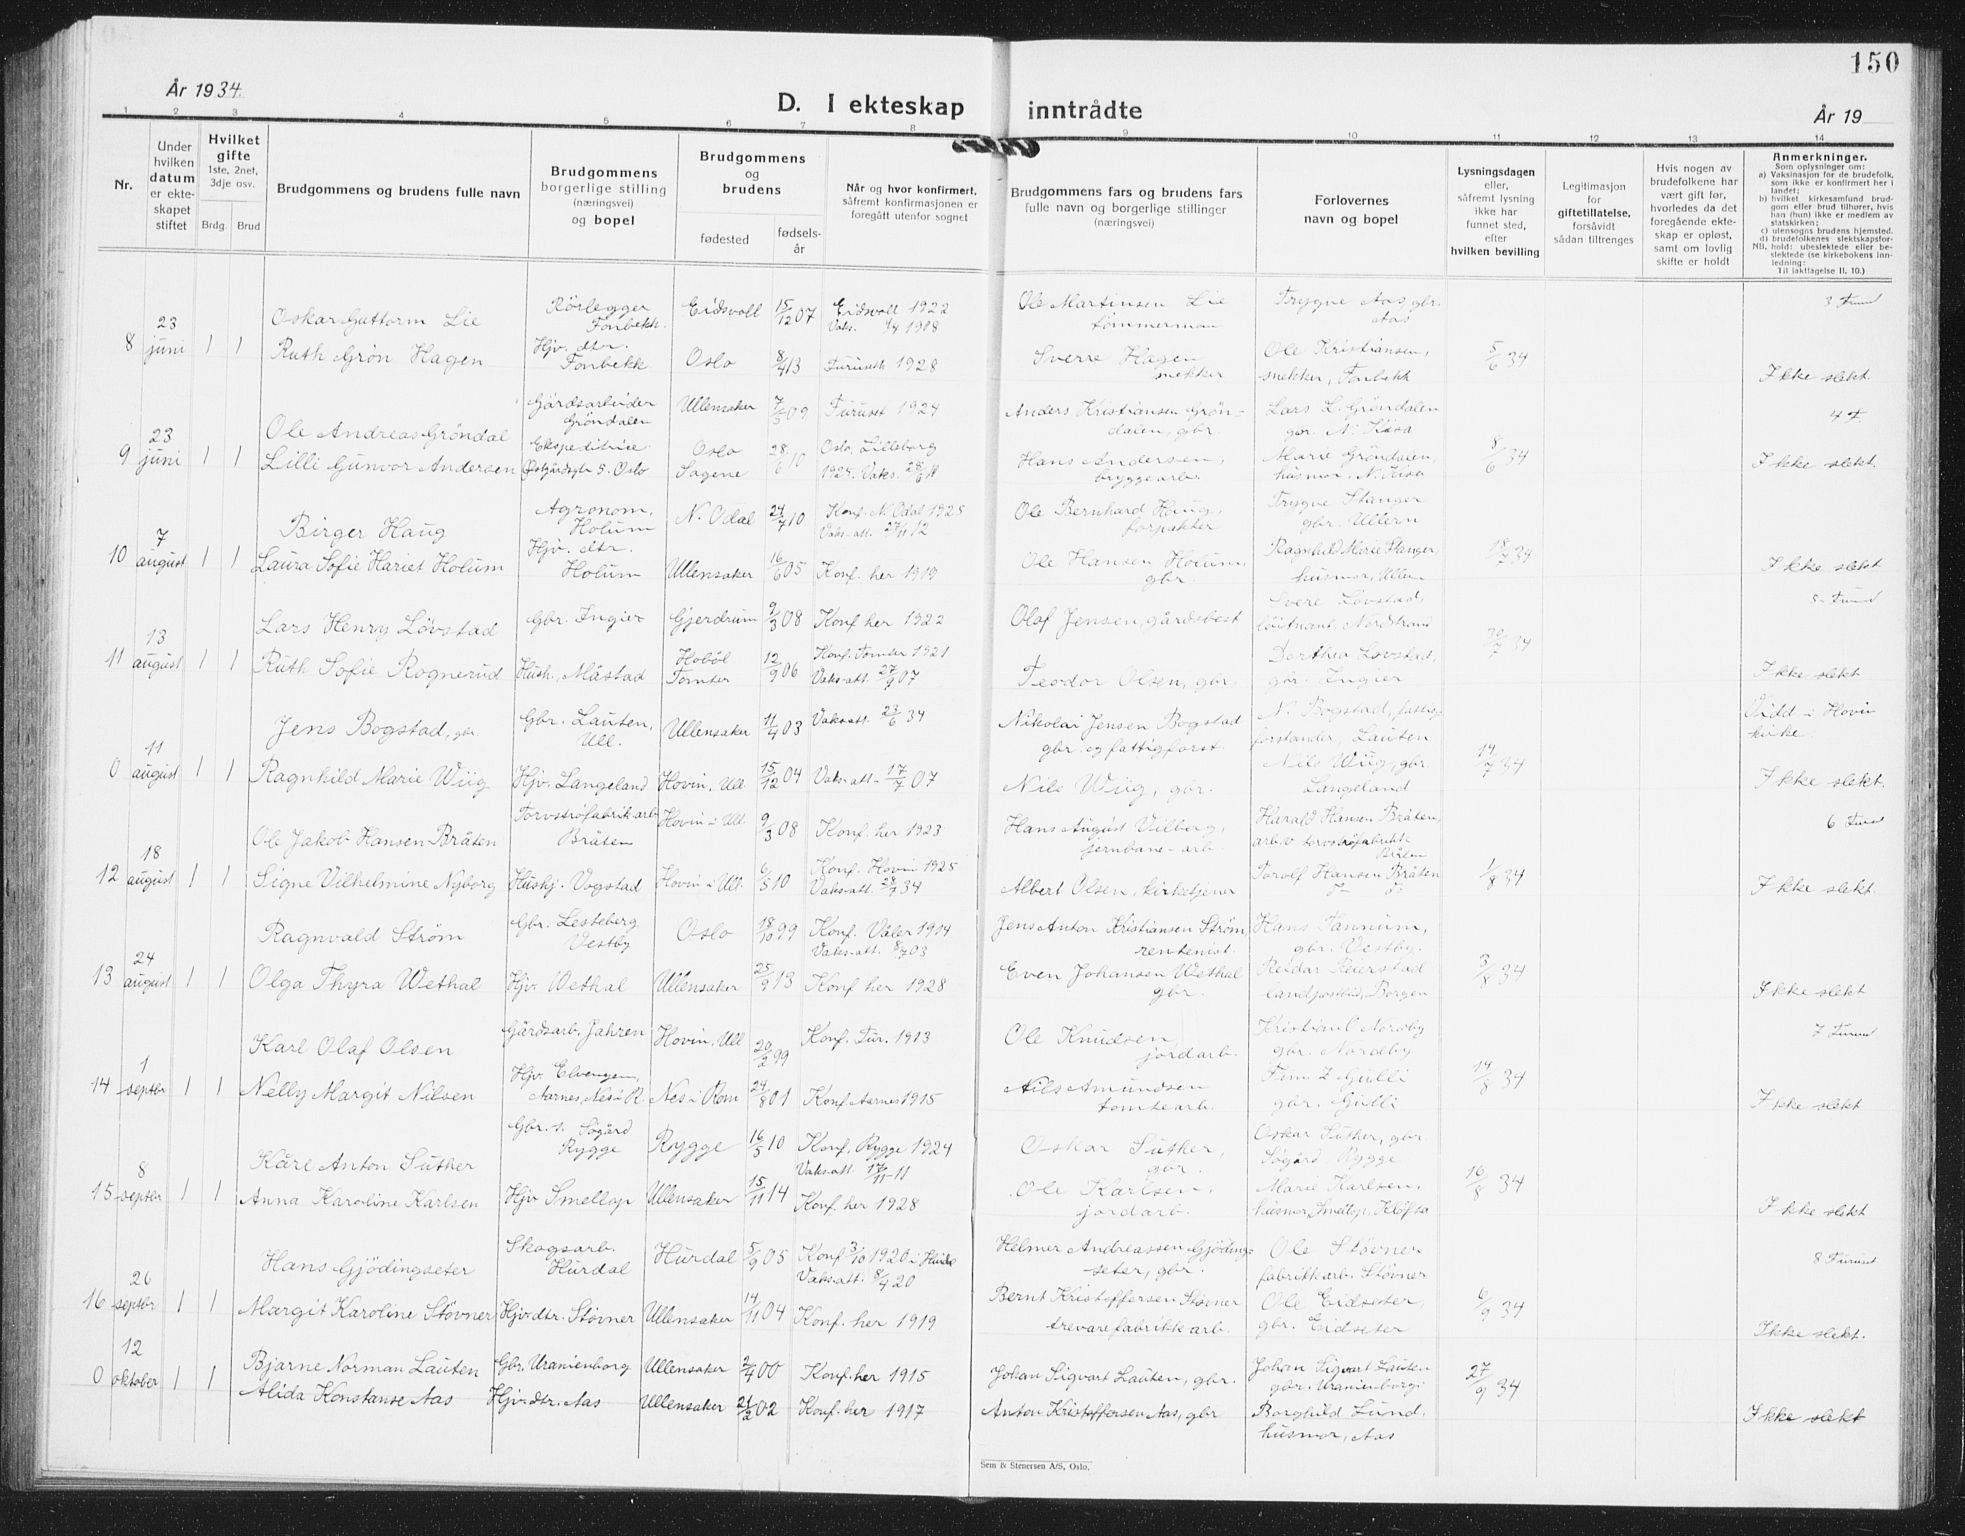 150
År 1934.
D. I ekteskap inntrådte
År 19
1 2 3 4 5 6 7 8 9 10 11 12 13 14
Nr.
Under hvilken datum er ekteskapet stiftet
Hvilket gifte 1ste, 2net, 3dje osv.
Brdg. Brud
Brudgommens og brudens fulle navn
Brudgommens borgerlige stilling (næringsvei) og bopel
Brudgommens og brudens
fødested
fødselsår
Når og hvor konfirmert, såfremt konfirmasjonen er foregått utenfor sognet
Brudgommens fars og brudens fars fulle navn og borgerlige stillinger (næringsvei)
Forlovernes navn og bopel
Lysningsdagen eller, såfremt lysning ikke har funnet sted, efter hvilken bevilling
Legitimasjon for giftetillatelse, forsåvidt sådan tiltrenges
Hvis nogen av brudefolkene har vært gift før, hvorledes da det foregående ekteskap er opløst, samt om lovlig skifte er holdt
Anmerkninger.
Som oplysninger om:
a) Vaksinasjon for de brudefolk, som ikke er konfirmert her i landet;
b) hvilket kirkesamfund brudgom eller brud tilhører, hvis han (hun) ikke er medlem av statskirken;
c) utensogns brudens hjemsted.
d) brudefolkenes slektskapsforhold: ubeslektede eller beslektede (se kirkebokens innledning:
NB. Til iakttagelse II, 10.)
8 23 juni 1 1
Oskar Guttorm Lie
Rörlegger Fonbekk.
Eidsvoll 15/12 07
Eidsvoll 1922
Ole Martinsen Lie tömmerman
Trygve Aas, gbr. Aas
Ruth Grön Hagen
Hjv. dtr. Fonbekk
Oslo 8/4 13
Furuseth 1928
Sverre Hagen snekker
Ole Kristiansen, snekker, Fonbekk
5/6 34
Ikke slekt.
9 23 juni 1 1
Ole Andreas Gröndal
Gårdsarbeider Gröndalen
Ullensaker 7/5 09
Furuset 1924
Anders Kristiansen Gröndalen, gbr.
Lars L. Gröndalen gbr. N. Kisa
Lilli Gunvor Andersen
Ekspeditrise Östgårdsgt 5. Oslo
Oslo Sagene 28/6 10
Oslo, Lilleborg 1925. Vaks.
Hans Andersen, bryggearb.
Marie Gröndalen, husmor, N. Kisa
8/6 34
Ikke slekt.
10 7 august 1 1
Birger Haug
Agronom, Holum
N. Odal 24/7 10
Konf. N. Odal 1925
Vaks-att. 27/11 12
Ole Bernhard Haug, forpakter
Trygve Stanger gbr. Ullern
Laura Sofie Hariet Holum
Hjv. dtr. Holum
Ullensaker 16/6 05
Konf. her 1919
Ole Hansen Holum, gbr.
Ragnhild Marie Stanger, husmor, Ullern
18/7 34
Ikke slekt
11 13 august 1 1
Lars Henry Lövstad
Gbr. Ingier
Gjerdrum 9/3 08
Konf. her 1922
Olaf Jensen, gårdsbest
Svere Lövstad, löitnant, Nordstrand
Ruth Sofie Rognerud
Hush. Måstad
Hobøl Tomter 12/9 06
Konf. Tomter 1921
Vaks-att. 27/9 07
Teodor Olsen, gbr.
Dorthea Lövstad, gbr. Ingier
30/7 34
Ikke slekt
0 11 august 1 1
Jens Bogstad, gbr.
Gbr. Lauten, Ull.
Ullensaker 11/4 03
Vaks-att. 23/6 34
Nikolai Jensen Bogstad gbr. og fattigforst.
N. Bogstad, fattigforstander, Lauten
Vidd i Hovin kirke.
Ragnhild Marie Wiig
Hjv. Langeland
Hovin, Ull. 15/12 04
Vaks-att. 17/7 07
Nils Wiig, gbr.
Nils Wiig, gbr. Langeland
14/7 34
Ikke slekt.
12 18 august 1 1
Ole Jakob Hansen Bråten
Torvströfabrikarb. Bråten
Hovin i Ull. 9/3 08
Konf. her 1923
Hans August Vilberg, jernbane-arb.
Harald Hansen Bråten, arb. v torvströfabrikk Bråten
Signe Vilhelmine Nyborg
Hushj. Vogstad
Hovin i Ull. 6/5 10
Konf. Hovin 1925
Vaks-att. 28/7 34
Albert Olsen, kirketjener
Torolf Hansen Bråten
1/8 34
Ikke slekt
13 24 august 1 1
Ragnvald Ström
Gbr. Lesteberg Vestby
Oslo 18/10 99
Konf. Våler 1914
Vaks-att. 8/7 03
Jens Anton Kristiansen Ström, rentenist.
Hans Tannum, gbr. Vestby.
Olga Thyra Wethal
Hjv. Wethal
Ullensaker 25/9 13
Konf her 1928
Even Johansen Wethal gbr.
Reidar Reierstad landpostbud, Borgen
3/8 34
Ikke slekt
14 1 septbr 1 1
Karl Olaf Olsen
Gårdsarb, Jahren
Hovin, Ull 20/2 99
Konf. Fur. 1913
Ole Knudsen, jordarb.
Kristian O Nordby gbr. Nordby
Nelly Margit Nilsen
Hjv. Elvengen, Aarnes, Nes i R.
Nes i Rom 24/8 01
Konf Aarnes 1915
Nils Amundsen tomtearb.
gbr. Gulli
14/8 34
7 Furus
Ikke slekt
15 8 septbr 1 1
Kåre Anton Suther
Gbr. s. Søgård Rygge
Rygge 16/5 10
Konf. Rygge 1924
Vaks-att. 17/11-11
Oskar Suther, gbr.
Oskar Suther, gbr. Søgård Rygge
Anna Karoline Karlsen
Hjv Smellop
Ullensaker 15/11 14
Konf. her 1928
Ole Karlsen, jordarb.
Marie Karlsen, husmor, Smellop, Kløfta
16/8 34
Ikke slekt
16 26 septbr 1 1
Hans Gjödingseter
Skogsarb. Hurdal
Hurdal 5/9 05
Konf 3/10 1920 i Hurdal
Vaks-att. 8/4 20
Helmer Andreassen Gjödingseter, gbr.
Ole Støvner fabrikkarb. Støvner
8 Furuset
Margit Karoline Støvner
Hjv. dtr. Støvner
Ullensaker 14/11 04
Konf. her 1919
Bernt Kristoffersen Støvner trevarefabrikkarb.
Ole Eidseter, gbr. Eidseter
6/9 34
Ikke slekt.
0 12 oktober 1 1
Bjarne Norman Lauten
Gbr. Uranienborg
Ullensaker 2/4 00
Konf. her 1915
Johan Sigvart Lauten, gbr.
Johan Sigvart Lauten gbr. Uranienborg
Alida Konstanse Aas
Hjv. dtr. Aas
Ullensaker 21/2 02
Konf. her 1917
Anton Kristoffersen Aas, gbr
Borghild Lund, husmor, Aas
27/9 34
Ikke slekt
Sem & Stenersen A/S, Oslo.